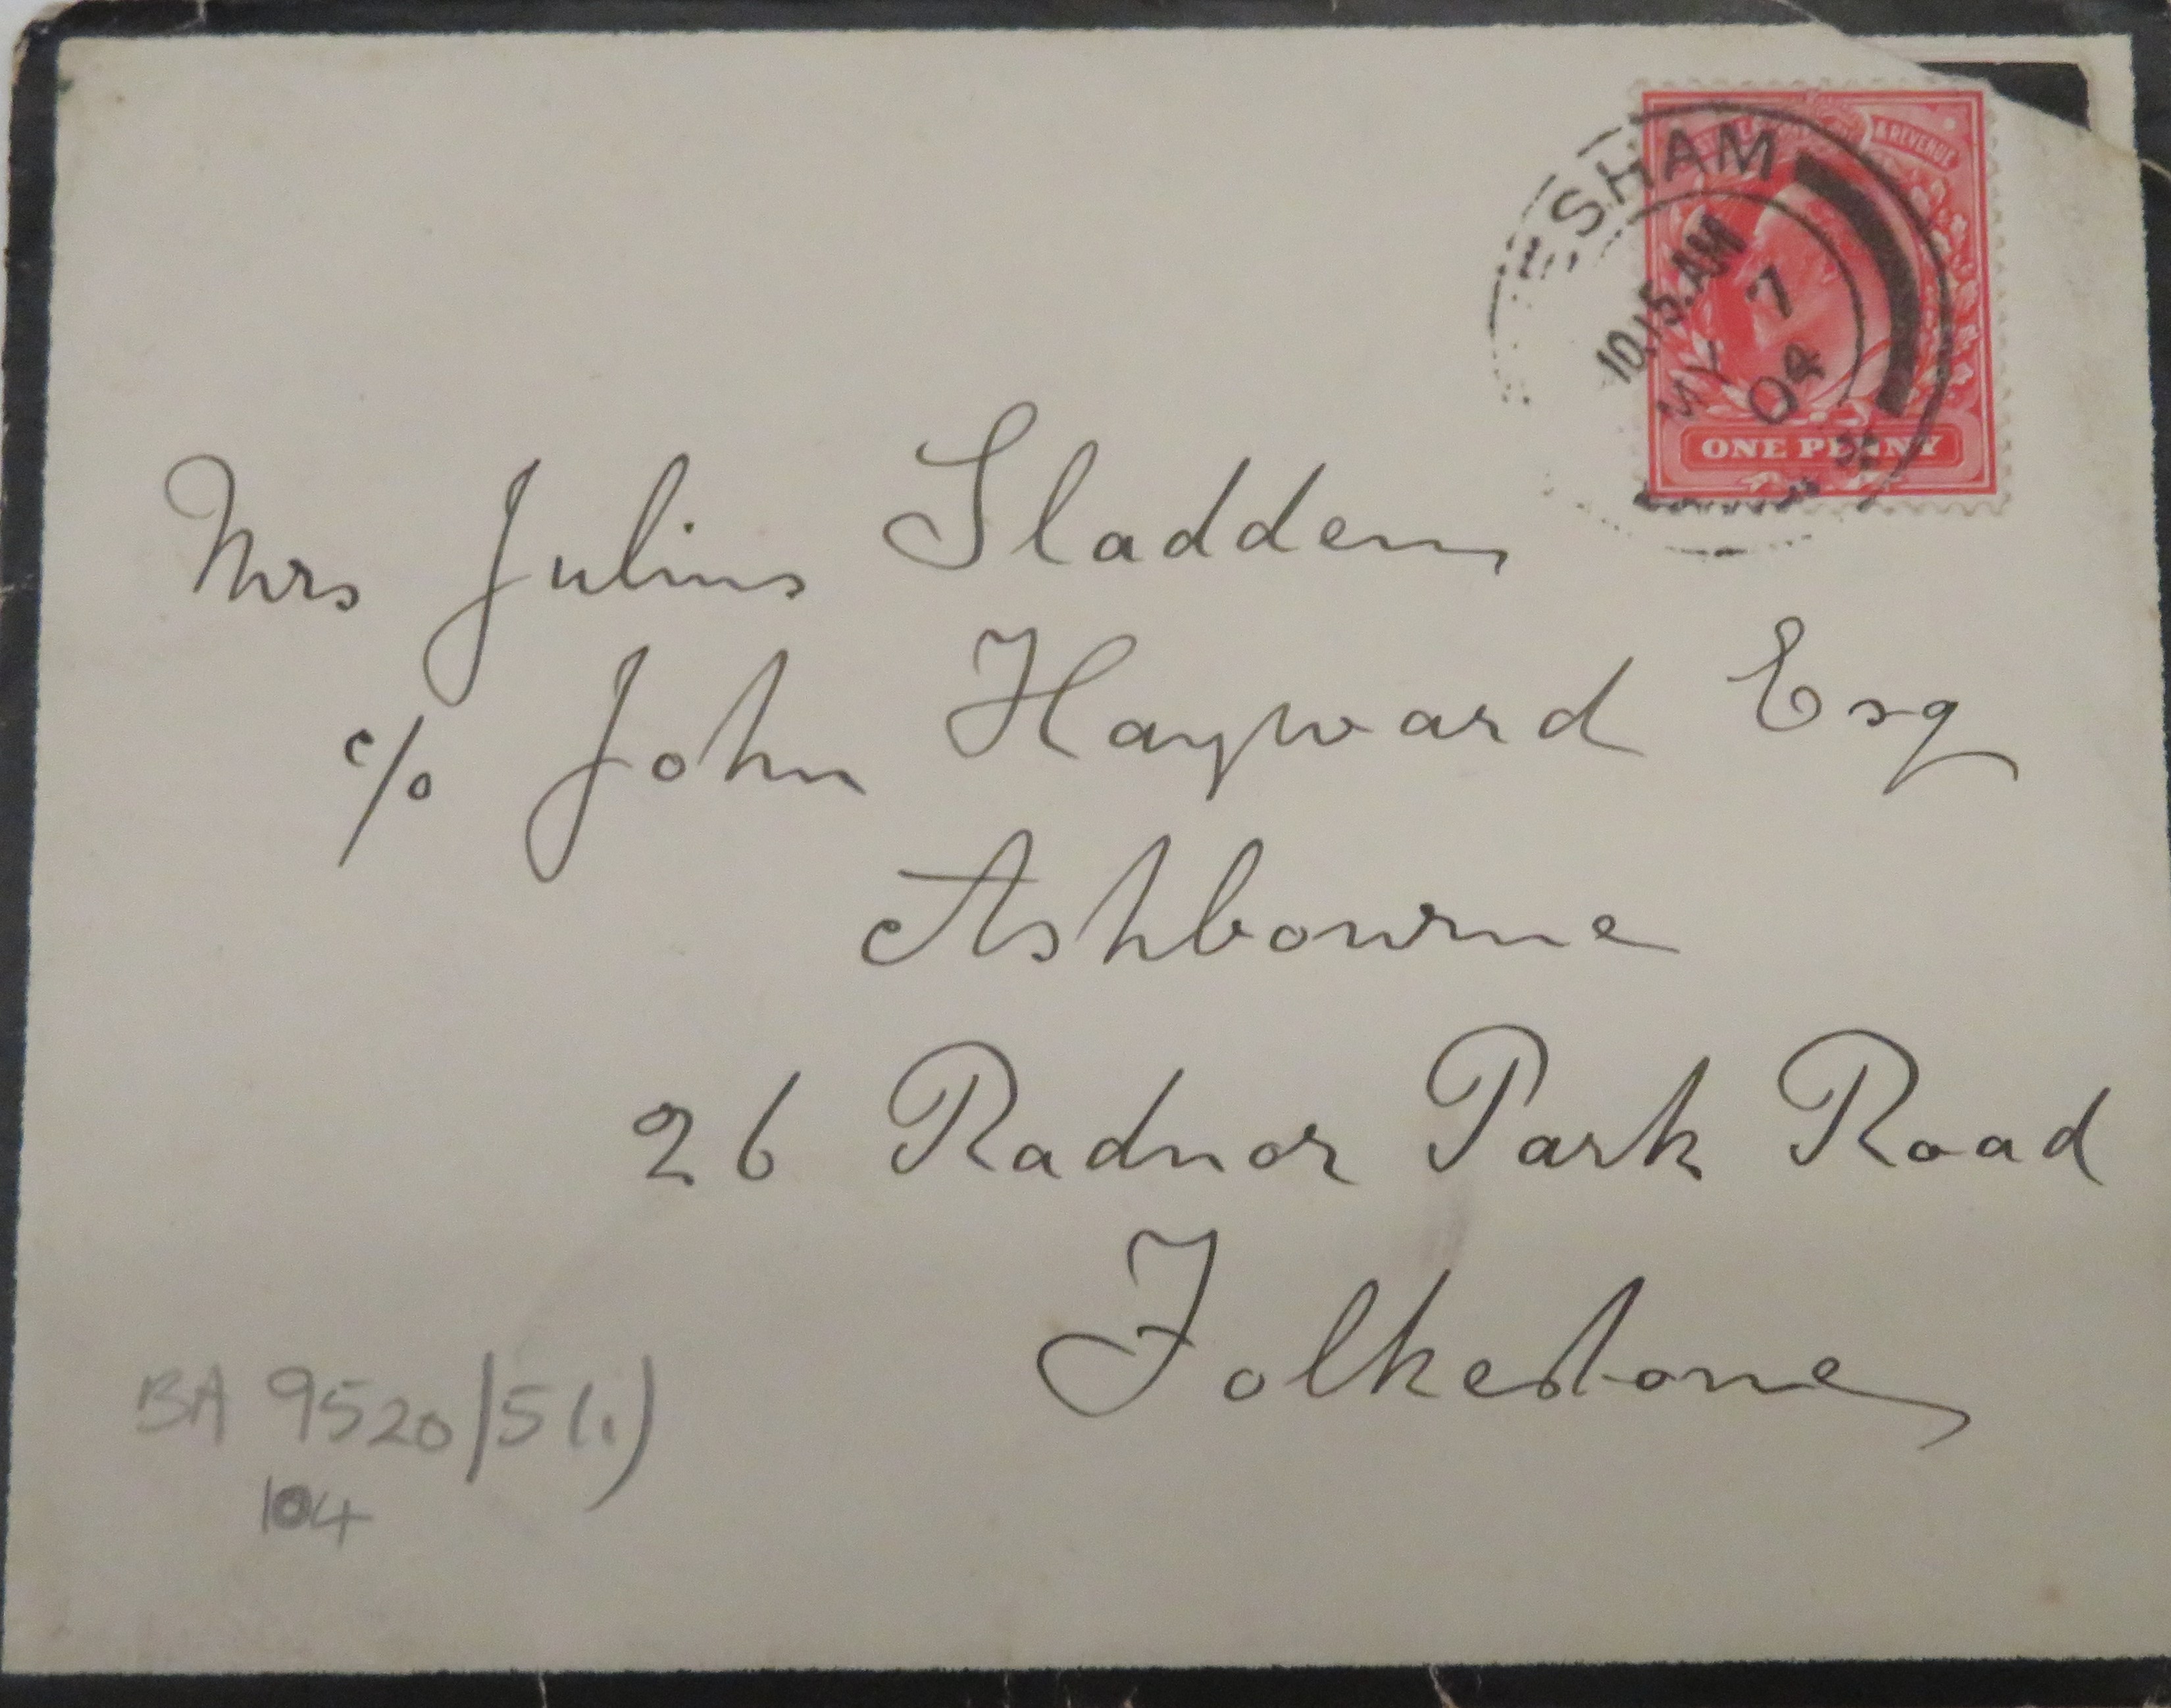 & REVENUE
ESHAM
10.15.AM
MY 7
04
ONE PENNY
Mrs Julius Sladden
c/o John Hayward Esq
Ashbourne
26 Radnor Park Road
Folkestone
BA 9520/5(1)
104